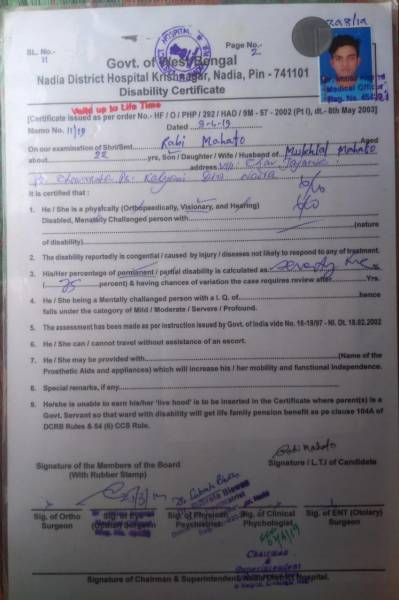 SL. No.-
11
Page No.-
2
Govt. of West Bengal
Nadia District Hospital Krishnagar, Nadia, Pin - 741101
Disability Certificate
Valid up to Life Time
[Certificate issued as per order No.- HF / O / PHP / 292 / HAD / 9M - 57 - 2002 (Pt I), dt.- 8th May 2003]
Memo No. 11/19 Dated
On our examination of Shri/Smt. Rabi Mahato Aged
about 22 yrs, Son / Daughter / Wife / Husband of Mukhlal Mahato
address Vill
Kalyani Nadia
It is certified that :
1. He / She is a physically (Orthopaedically, Visionary, and Hearing)
Disabled, Mentally Challenged person with (nature
of disability)
2. The disability reportedly is congential / caused by injury / diseases not likely to respond to any of treatment.
3. His/Her percentage of permanent / partial disability is calculated as Seventy five
( 75 percent) & having chances of variation the case requires review after Yrs.
4. He / She being a Mentally challenged person with a I. Q. of hence
falls under the category of Mild / Moderate / Servere / Profound.
5. The assessment has been made as per instruction issued by Govt. of India vide No. 16-18/97 - NI. Dt. 18.02.2002
6. He / She can / cannot travel without assistance of an escort.
7. He / She may be provided with (Name of the
Prosthetic Aids and appliances) which will increase his / her mobility and functional independence.
8. Special remarks, if any
9. He/she is unable to earn his/her 'live hood' is to be inserted in the Certificate where parent(s) is a
Govt. Servant so that ward with disability will get life family pension benefit as pe clause 104A of
DCRB Rules & 54 (6) CCS Rule.
Rabi Mahato
Signature of the Members of the Board
(With Rubber Stamp)
Signature / L.T.I of Candidate
Sig. of Ortho
Surgeon
Sig. of Eye
Surgeon
Sig. of Physical
Psychiatrist
Sig. of Clinical
Phychologist
Sig. of ENT (Otolary)
Surgeon
Chairman
&
Superintendent
Signature of Chairman & Superintendent Nadia District Hospital.